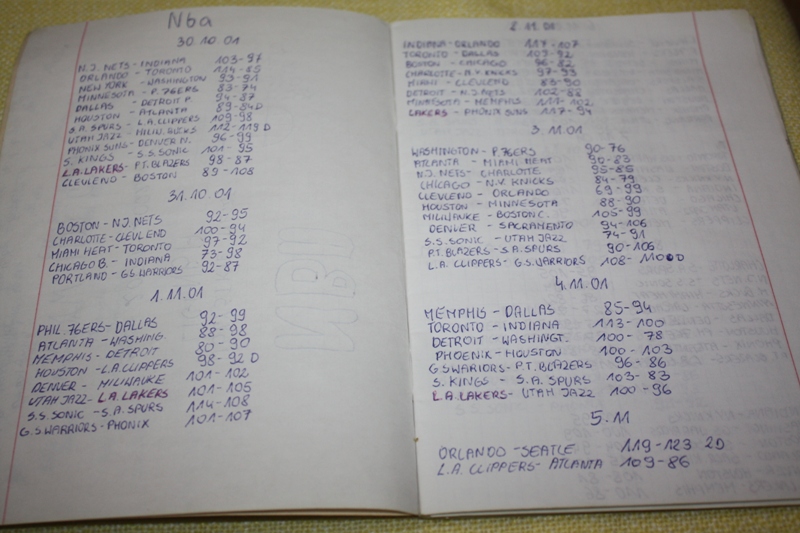 Nba
30.10.01
N.J. NETS - INDIANA 103-97
ORLANDO - TORONTO 114-85
NEW YORK - WASHINGTON 93-91
MINNESOTA - P. 76ERS 83-74
DALLAS - DETROIT P. 94-87
HOUSTON - ATLANTA 89-84D
S.A. SPURS - L.A. CLIPPERS 109-98
UTAH JAZZ - MILW. BUCKS 112-119 D
PHONIX SUNS - DENVER N. 96-99
S. KINGS - S.S. SONIC 101-95
L.A. LAKERS - P.T. BLAZERS 98-87
CLEVLEND - BOSTON 89-108
31.10.01
BOSTON - N.J. NETS 92-95
CHARLOTTE - CLEVLEND 100-94
MIAMI HEAT - TORONTO 97-92
CHICAGO B. - INDIANA 73-98
PORTLAND - G.S. WARRIORS 92-87
1.11.01
PHIL. 76ERS - DALLAS 92-99
ATLANTA - WASHING. 88-98
MEMPHIS - DETROIT 80-90
HOUSTON - L.A. CLIPPERS 98-92 D
DENVER - MILIWAUKE 101-102
UTAH JAZZ - L.A. LAKERS 101-105
S.S. SONIC - S.A. SPURS 114-108
G.S WARRIORS - PHONIX 101-107
2.11.01
INDIANA - ORLANDO 117-107
TORONTO - DALLAS 109-92
BOSTON - CHICAGO 96-82
CHARLOTTE - N.Y. KNICKS 97-93
MIAMI - CLEVLEND 83-90
DETROIT - N.J. NETS 102-88
MINNESOTA - MEMPHIS 111-102
LAKERS - PHONIX SUNS 117-94
3.11.01
WASHINGTON - P. 76ERS 90-76
ATLANTA - MIAMI HEAT 90-83
N.J. NETS - CHARLOTTE 95-85
CHICAGO - N.Y. KNICKS 84-79
CLEVLEND - ORLANDO 69-99
HOUSTON - MINNESOTA 88-90
MILIWAUKE - BOSTON C. 105-99
DENVER - SACRAMENTO 94-106
S.S. SONIC - UTAH JAZZ 74-91
P.T. BLAZERS - S.A. SPURS 90-106
L.A. CLIPPERS - G.S. WARRIORS 108-110 D
4.11.01
MEMPHIS - DALLAS 85-94
TORONTO - INDIANA 113-100
DETROIT - WASHINGT. 100-78
PHOENIX - HOUSTON 100-103
G.S WARRIORS - P.T. BLAZERS 96-86
S. KINGS - S.A. SPURS 103-83
L.A. LAKERS - UTAH JAZZ 100-96
5.11
ORLANDO - SEATLE 119-123 2D
L.A. CLIPPERS - ATLANTA 109-86